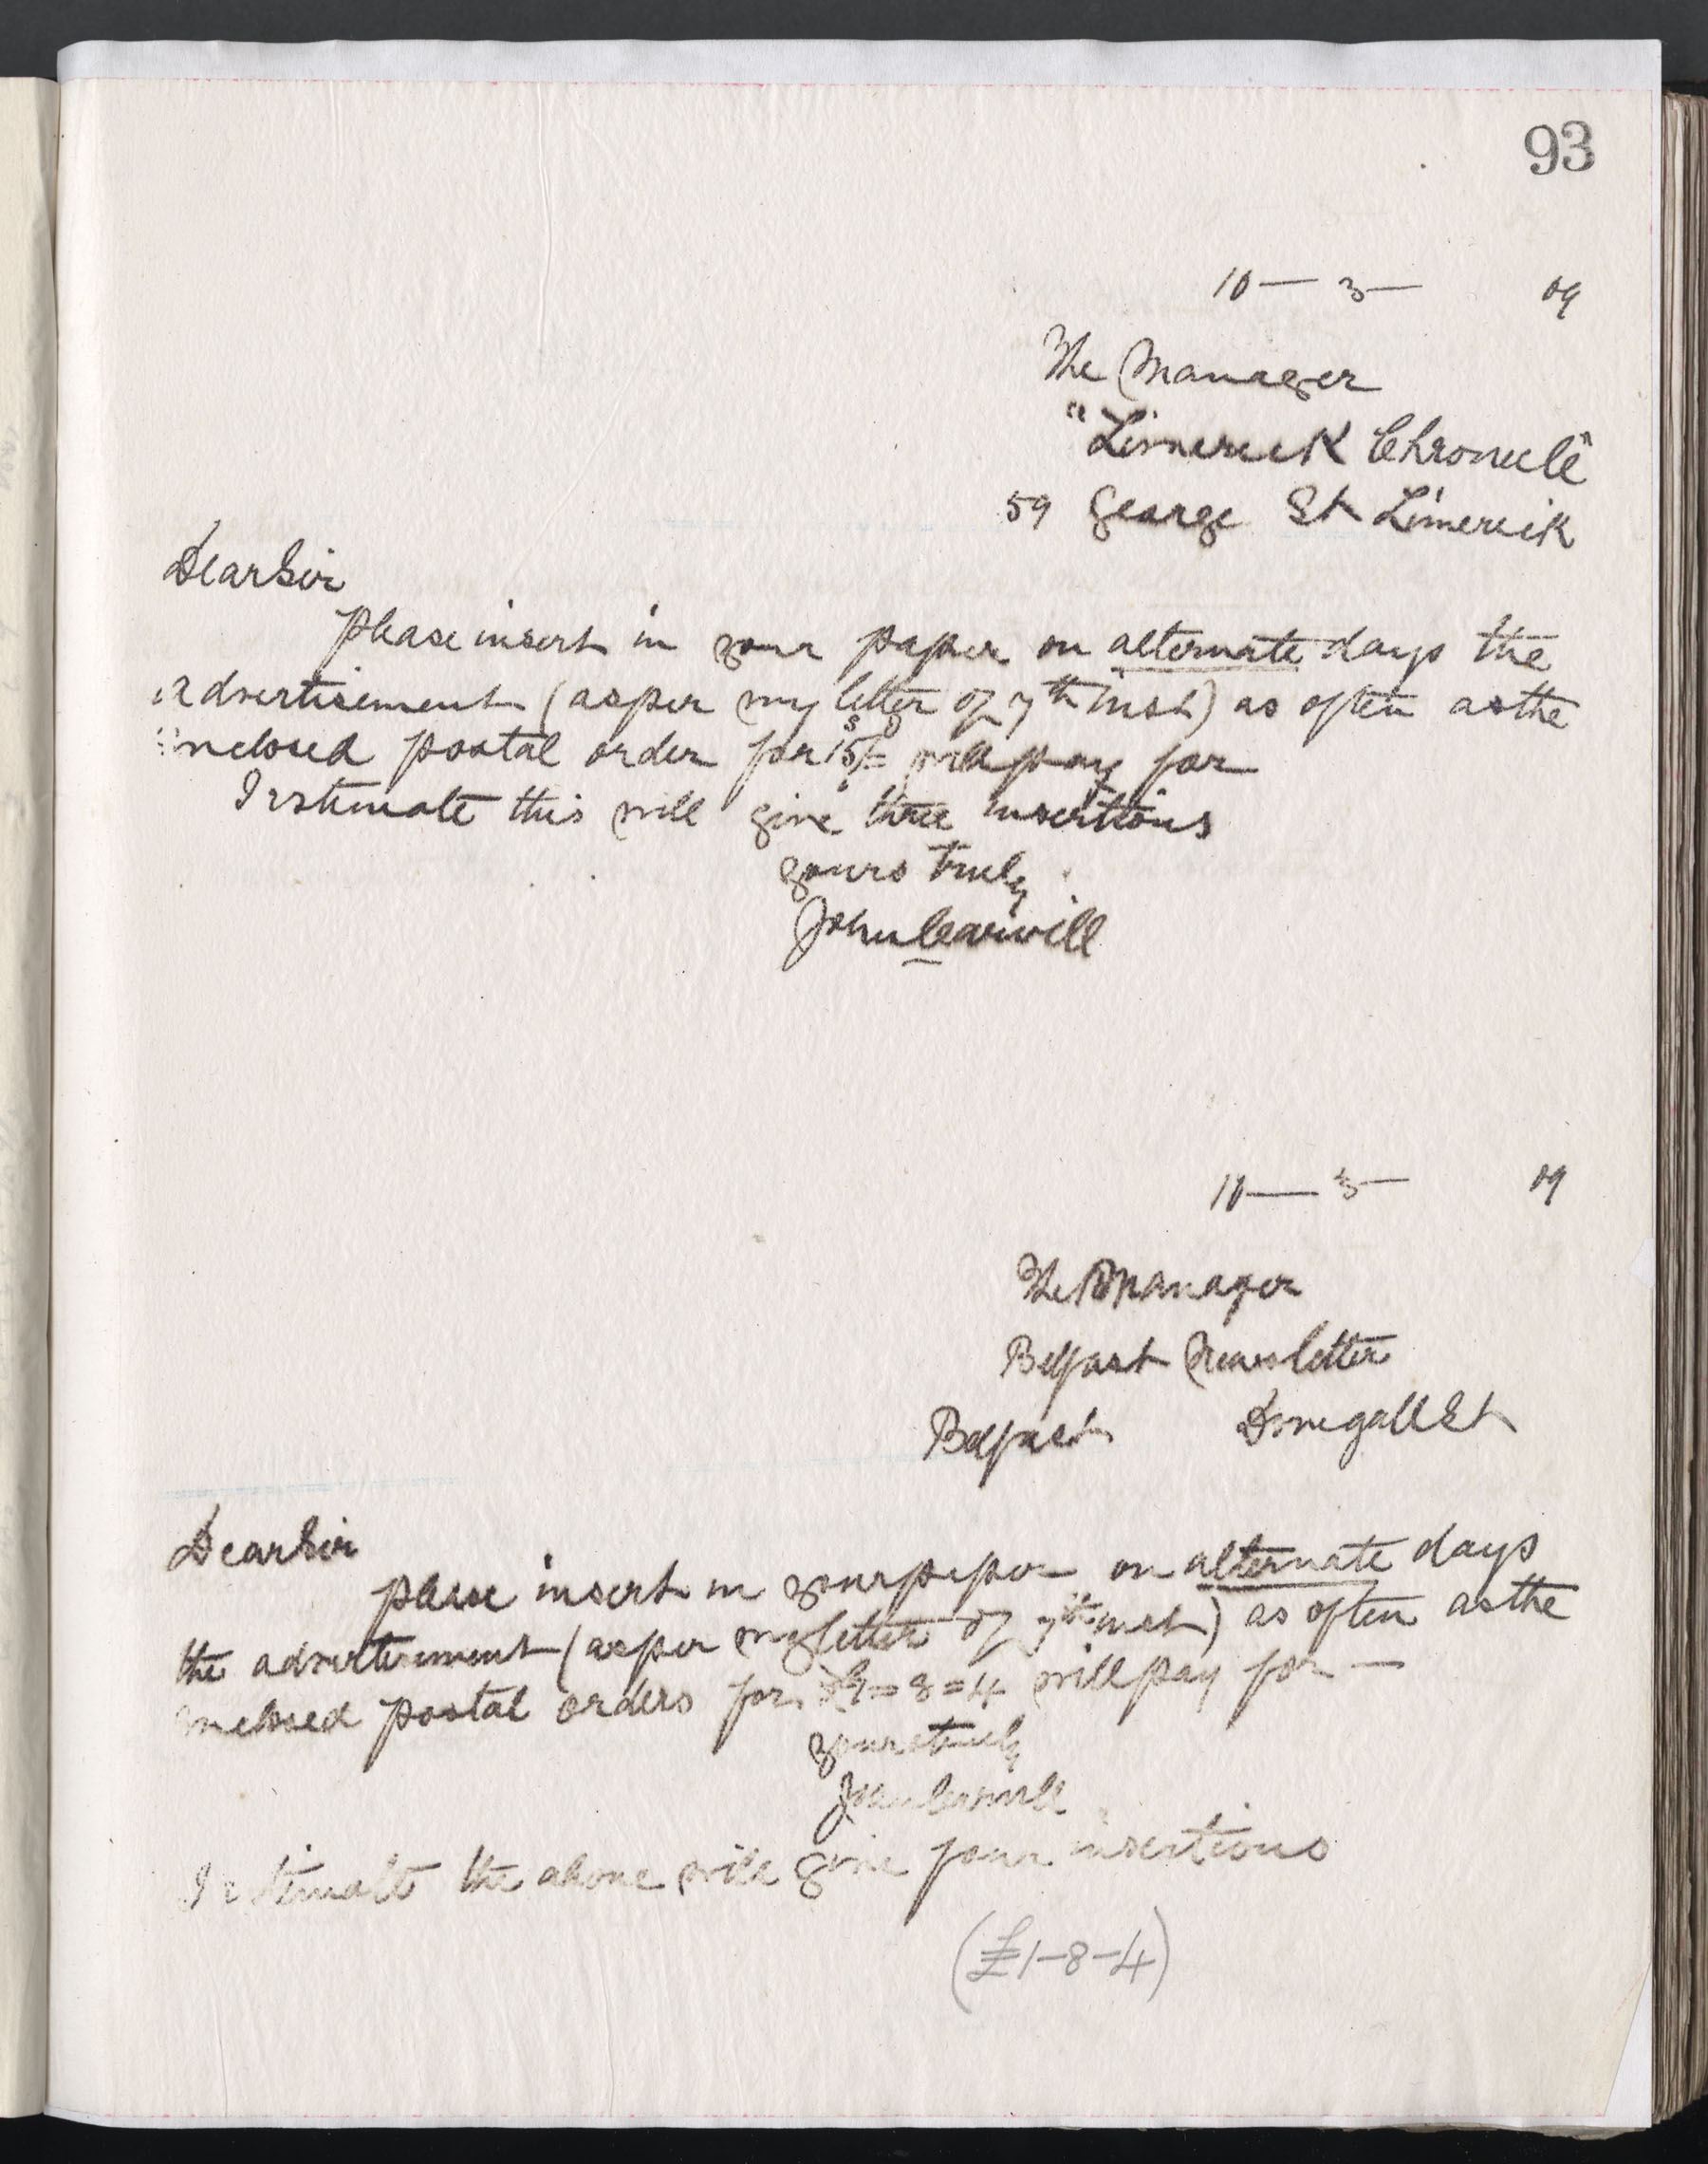 93
10 — 3 — 09
The Manager
"Limerick Chronicle"
59 George St Limerick
Dear Sir
Please insert in your paper on alternate days the
advertisement (as per my letter of 7th inst) as often as the
inclosed postal order for 15/= will pay for
I estimate this will give three insertions
yours truly
John Carvill
10 — 3 — 09
The Manager
Belfast Newsletter
Belfast Donegall St
Dear Sir
please insert in your paper on alternate days
the advertisement (as per my letter of 7th inst) as often as the
inclosed postal orders for = 8 = 4 will pay for —
yours truly
John Carvill
I estimate the above will give four insertions
(£1-8-4)